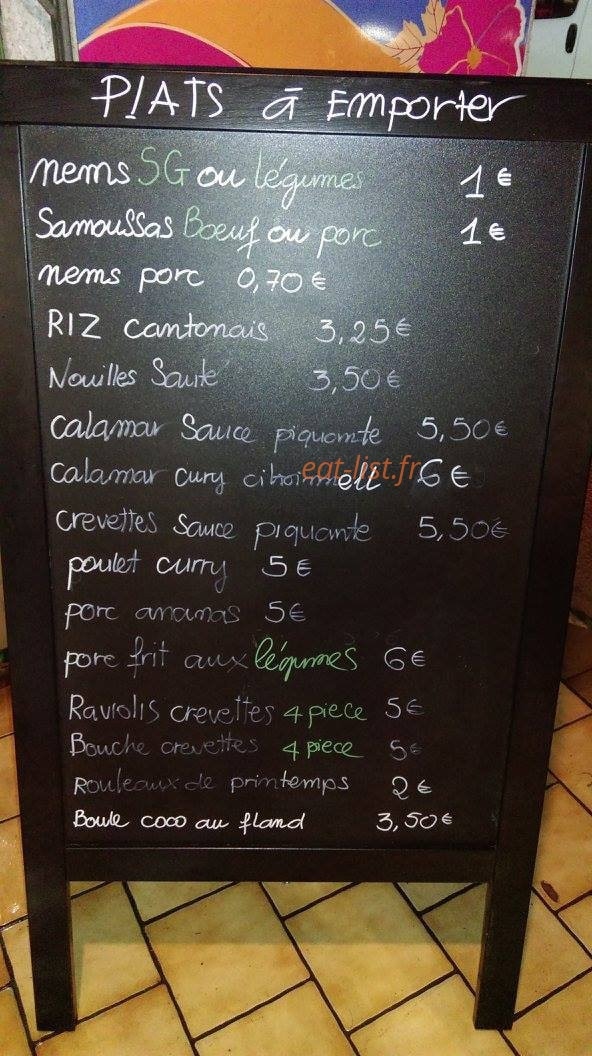 PLATS à Emporter
nems SG ou légumes 1 €
Samoussas Boeuf ou porc 1 €
nems porc 0,70 €
RIZ cantonais 3,25 €
Nouilles Sauté 3,50 €
calamar Sauce piquante 5,50 €
calamar cury 6 €
eat-list.fr
crevettes Sauce piquante 5,50 €
poulet curry 5 €
porc ananas 5 €
porc frit aux légumes 6 €
Raviolis crevettes 4 piece 5 €
Bouche crevettes 4 piece 5 €
Rouleaux de printemps 2 €
Boule coco au fland 3,50 €